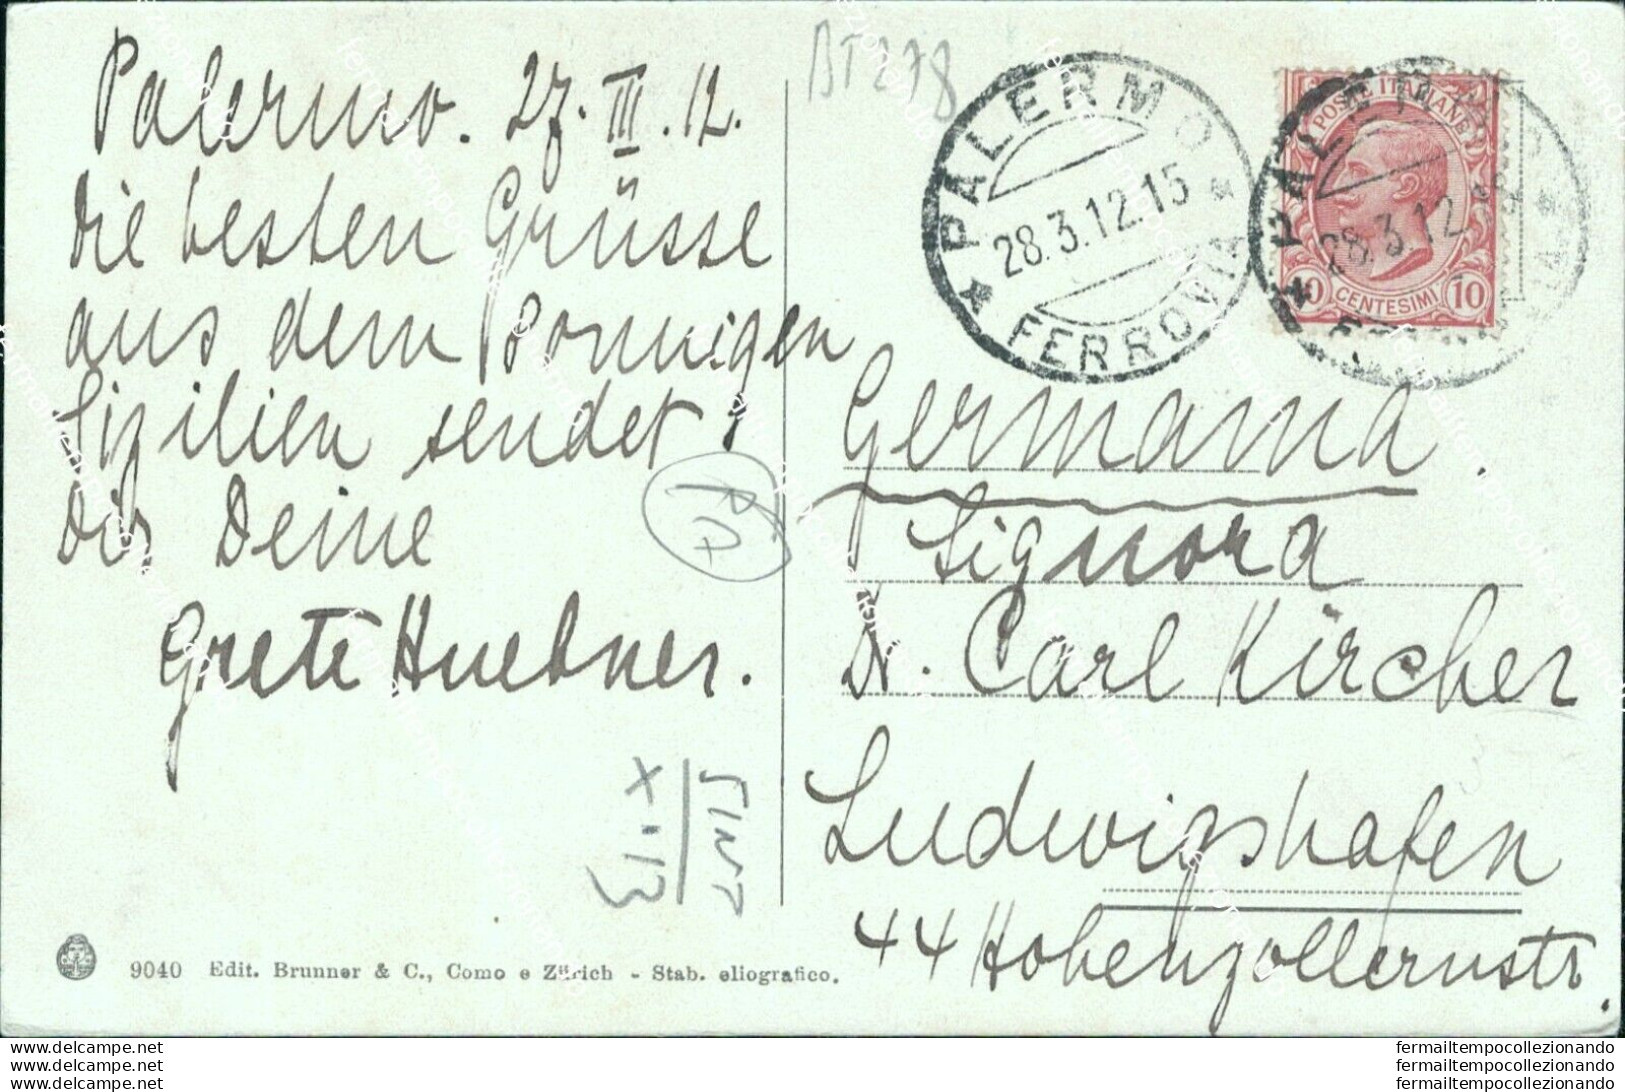 Palermo. 27. III. 12.
Die besten Grüsse
aus dem sonnigen
Sizilien sendet
Dir Deine
Grete Huebner.
BT 278
PALERMO
28.3.12.15
FERROVIA
POSTE ITALIANE
10 CENTESIMI 10
PALERMO
28.3.12
Germania.
Signora
Dr. Carl Kircher
Ludwigshafen
44 Hohenzollernstr.
9040 Edit. Brunner & C., Como e Zürich - Stab. eliografico.
www.delcampe.net
www.delcampe.net
www.delcampe.net
fermailtempocollezionando
fermailtempocollezionando
fermailtempocollezionando